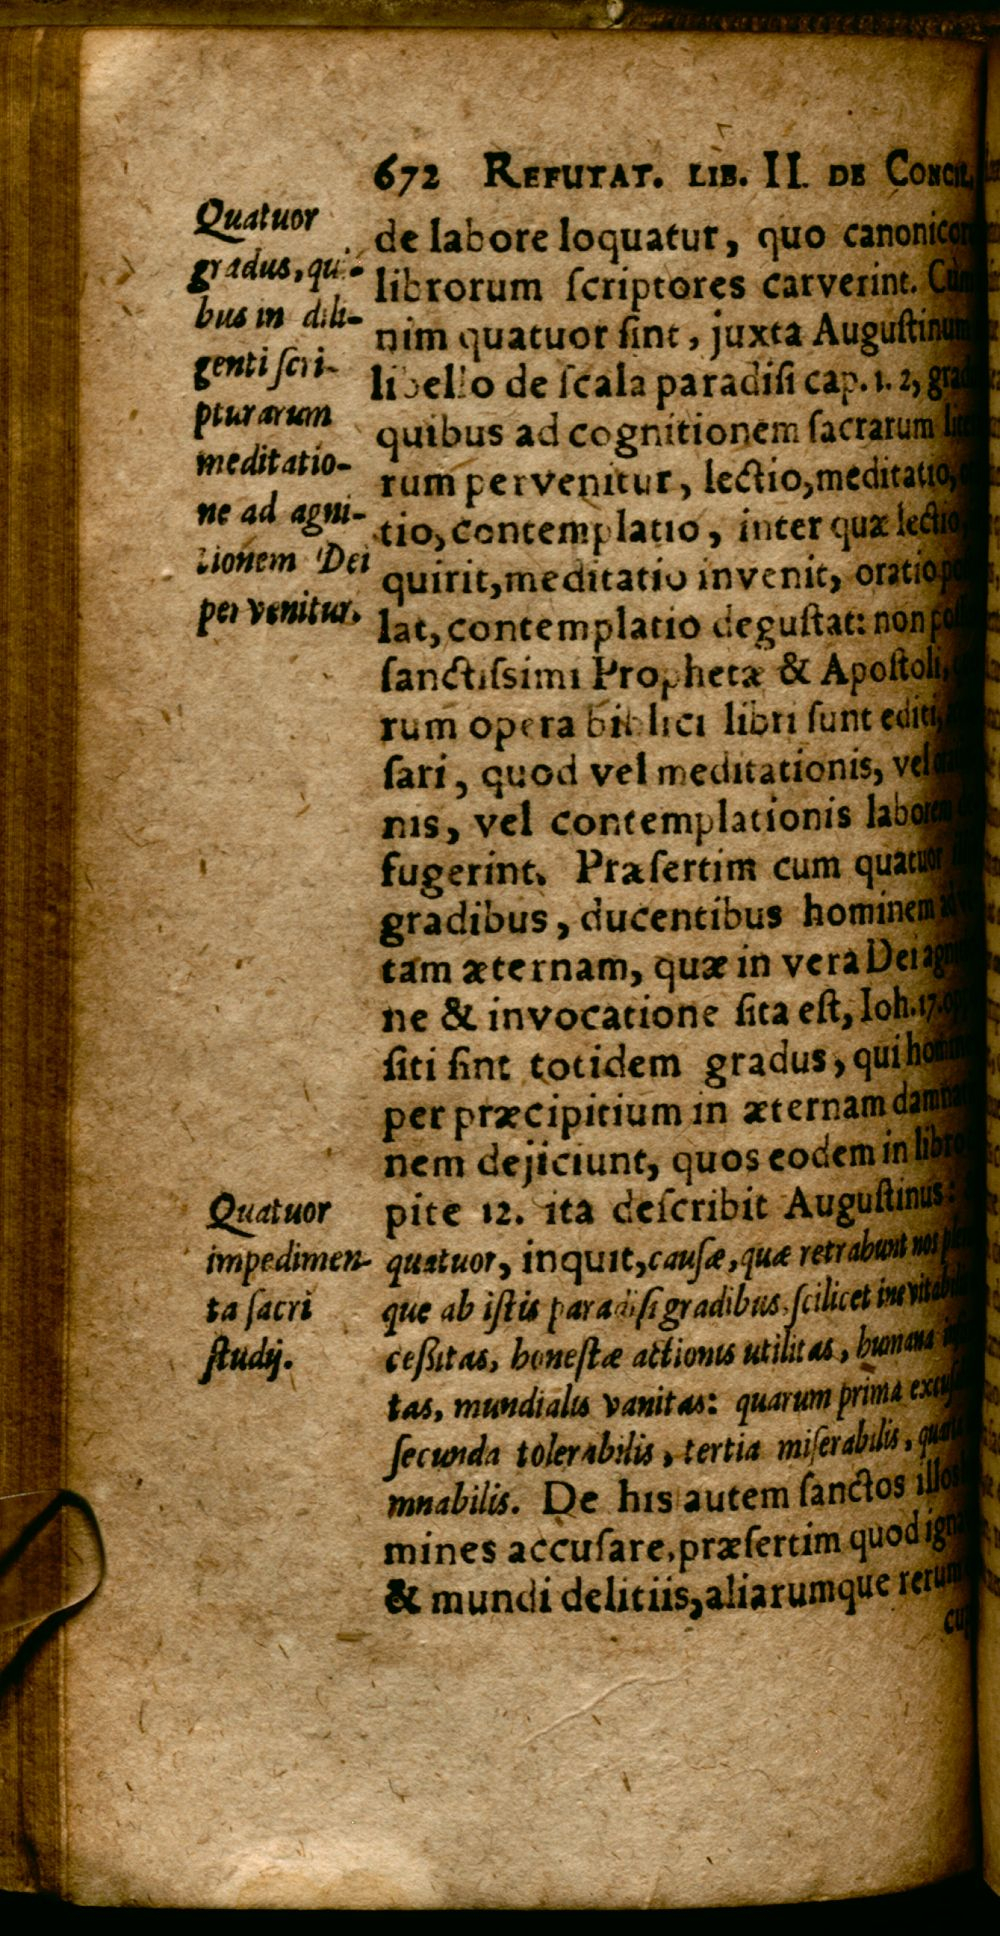 672 REFUTAT. LIB. II. DE CONCIL.
Quatuor
gradus, qui-
bus in dili-
genti ſcri-
pturarum
meditatio-
ne ad agni-
tionem Dei
pervenitur.
de labore loquatur, quo canonicor
librorum ſcriptores carverint. Cùm
nim quatuor ſint, juxta Auguſtinum
libello de ſcala paradiſi cap. 1. 2, grad
quibus ad cognitionem ſacrarum lite
rum pervenitur, lectio, meditatio, o
tio, contemplatio, inter quæ lectio,
quirit, meditatio invenit, oratio poſ
lat, contemplatio deguſtat: non poſſ
ſanctiſsimi Prophetæ & Apoſtoli,
rum opera biblici libri ſunt editi,
ſari, quod vel meditationis, vel
nis, vel contemplationis laborem
fugerint. Præſertim cum quatuor
gradibus, ducentibus hominem ad
tam æternam, quæ in vera Dei agni
ne & invocatione ſita eſt, Ioh. 17. op
ſiti ſint totidem gradus, qui homin
per præcipitium in æternam damna
nem dejiciunt, quos eodem in libro
pite 12. ita deſcribit Auguſtinus:
quatuor, inquit, cauſæ, quæ retrabunt nos ple
que ab iſtis paradiſi gradibus, ſcilicet inevitabil
ceßitas, honeſtæ actionis utilitas, humana inf
tas, mundialis vanitas: quarum prima excuſ
ſecunda tolerabilis, tertia miſerabilis, quarta
mnabilis. De his autem ſanctos illos
mines accuſare, præſertim quod igna
& mundi delitiis, aliarumque rerum
cup
Quatuor
impedimen-
ta ſacri
ſtudij.